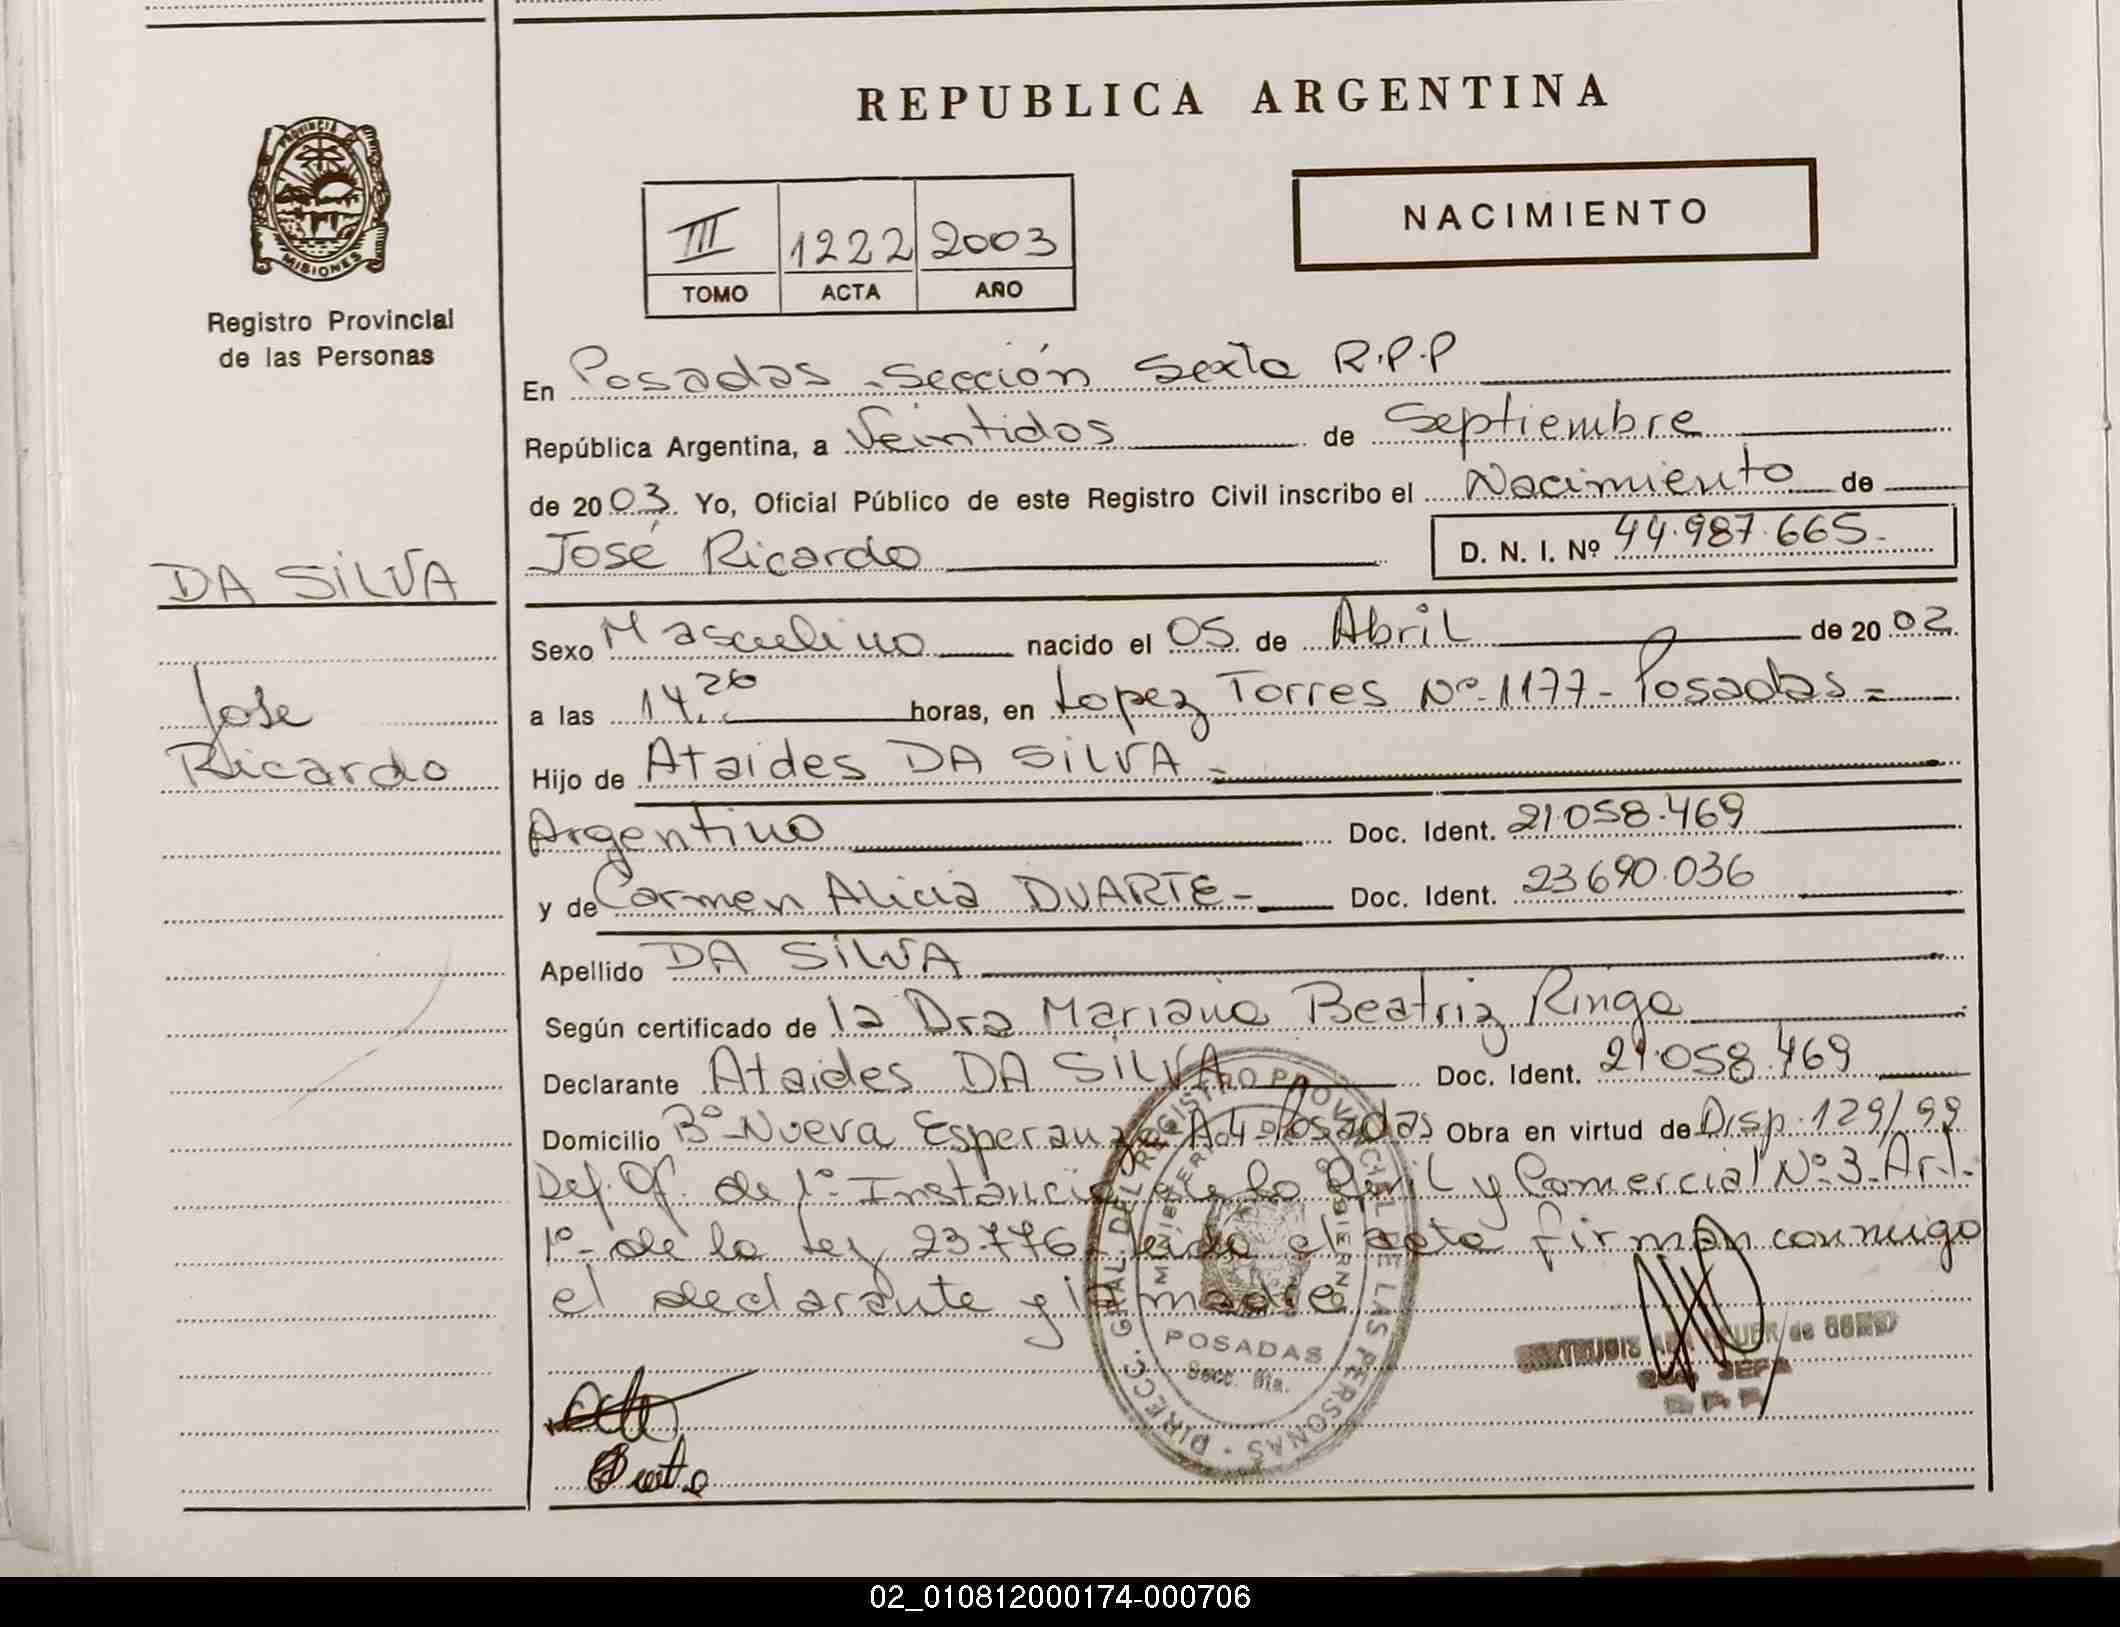 REPUBLICA ARGENTINA
PROVINCIA DE
MISIONES
Registro Provincial
de las Personas
NACIMIENTO
III 1222 2003
TOMO ACTA AÑO
En Posadas - Sección Sexta R.P.P
República Argentina, a Veintidos de Septiembre
de 2003. Yo, Oficial Público de este Registro Civil inscribo el Nacimiento de
José Ricardo D. N. I. Nº 44.987.665.-
DA SILVA
Jose
Ricardo
Sexo Masculino nacido el 05 de Abril de 2002
a las 14.26 horas, en Lopez Torres Nº-1177- Posadas-
Hijo de Ataides DA SILVA-
Argentino Doc. Ident. 21.058.469
y de Carmen Alicia DUARTE- Doc. Ident. 23690.036
Apellido DA SILVA
Según certificado de la Dra Mariana Beatriz Ringa
Declarante Ataides DA SILVA Doc. Ident. 21.058.469
Domicilio Bº-Nueva Esperanza A4-Posadas Obra en virtud de Disp. 129/99
Def. Of. de 1º Instancia de lo Civil y Comercial Nº 3-Art.
1º- de la Ley 23.776 leida el acta firman conmigo
el declarante y la madre
DIRECC. GRAL. DEL REGISTRO PROVINCIAL DE LAS PERSONAS
POSADAS
Secc. 6ta.
de
JEFA
02_010812000174-000706